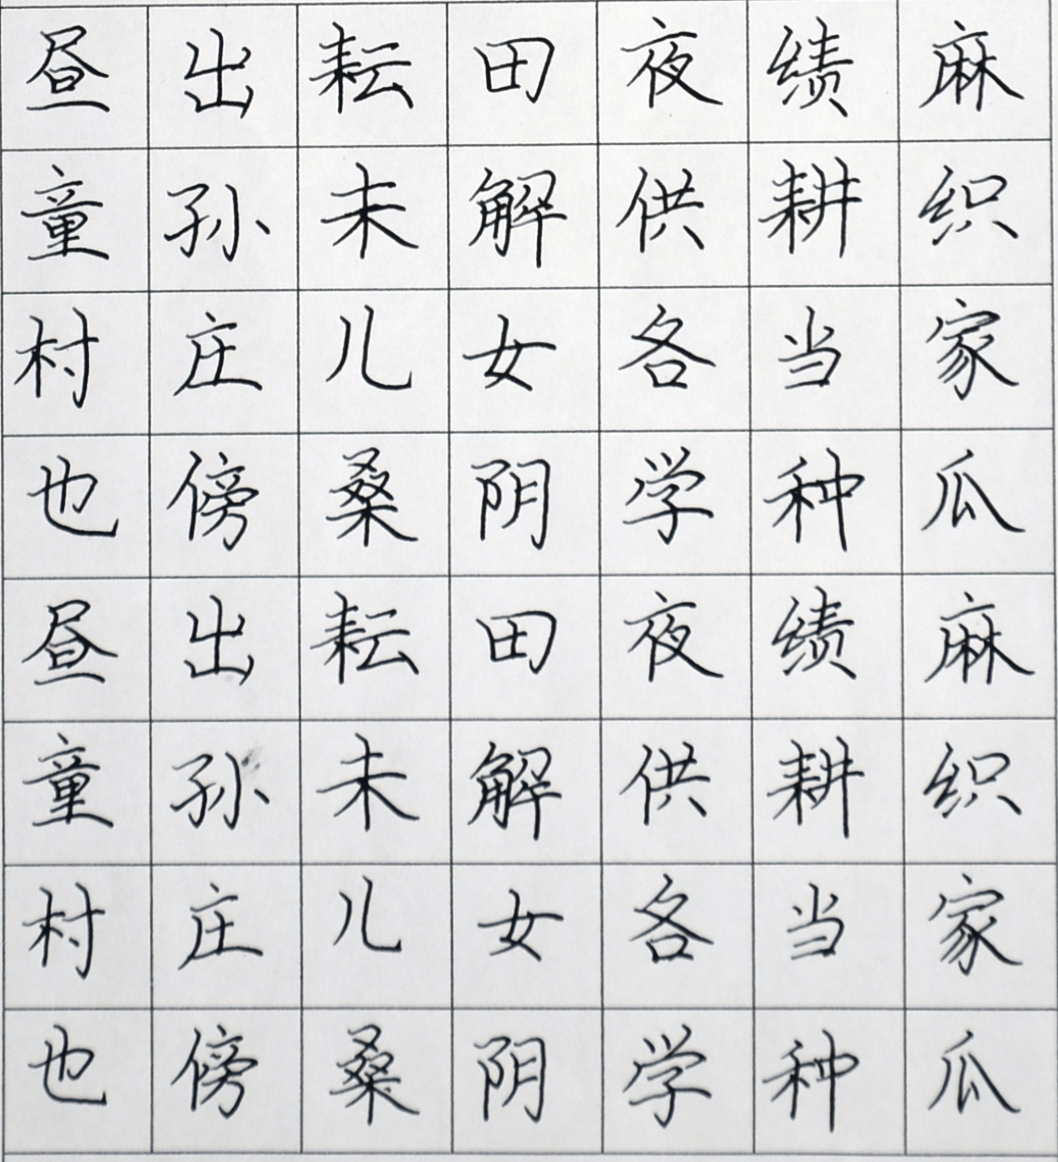 昼出耘田夜绩麻
童孙未解供耕织
村庄儿女各当家
也傍桑阴学种瓜
昼出耘田夜绩麻
童孙未解供耕织
村庄儿女各当家
也傍桑阴学种瓜